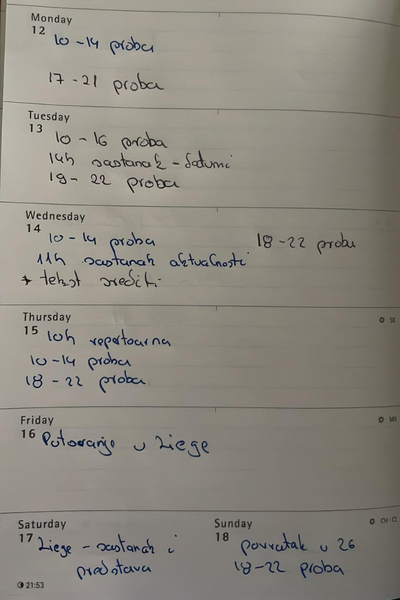 Monday
12
10-14 proba
17-21 proba
Tuesday
13
10 - 16 proba
14h sastanak - datumi
18 - 22 proba
Wednesday
14
10-14 proba 18-22 proba
11h sastanak aktualnosti
* tekst srediti
Thursday
15
10h repertoarna
10-14 proba
18 - 22 proba
Friday
16
Putovanje u Liege
Saturday
17
Liege - sastanak i
predstava
21:53
Sunday
18
povratak u ZG
18-22 proba